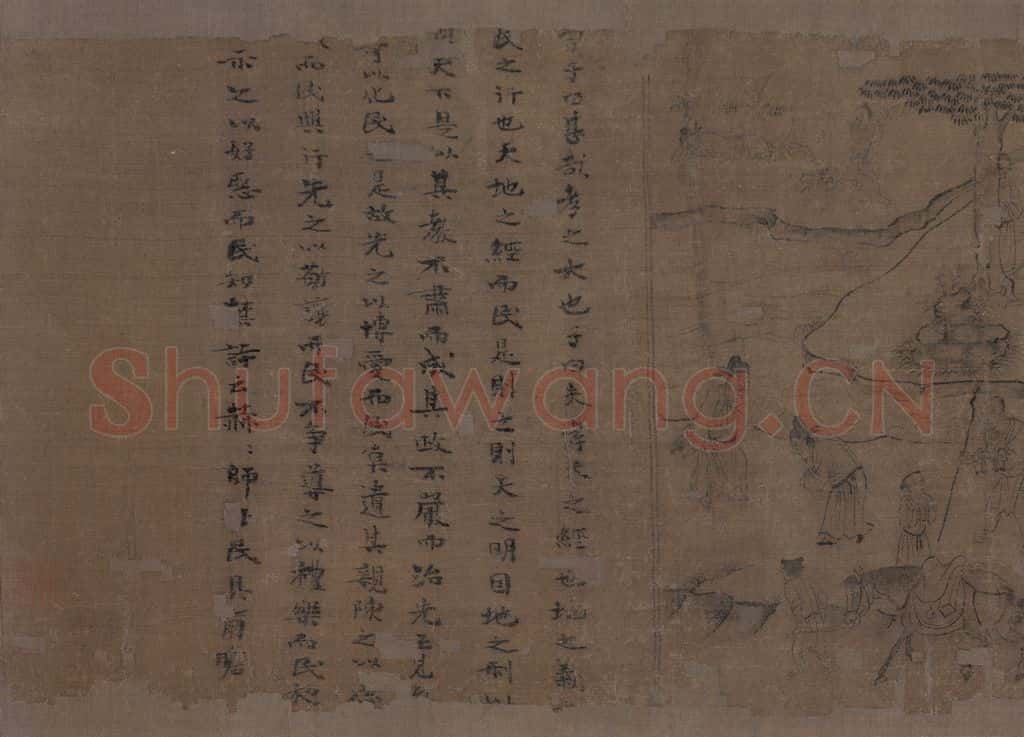 子曰甚哉孝之大也子曰夫孝天之經也地之義
民之行也天地之經而民是則之則天之明因地之利以
天下是以其教不肅而成其政不嚴而治先王見
可以化民是故先之以博愛而民莫遺其親陳之以
而民興行先之以敬讓而民不爭導之以禮樂而民和
示之以好惡而民知禁詩云赫〻師尹民具爾瞻
Shufawang.CN